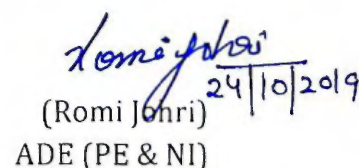 Romi Johri
24|10|2019
(Romi Johri)
ADE (PE & NI)